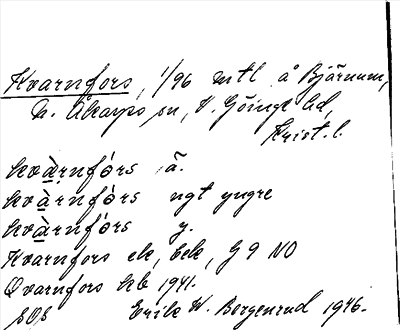 Kvarnfors, 1/96 mtl å Bjärnum,
N. Åkarps sn, V. Göinge hd,
Krist. l.
kvàrnfórs ä.
kvàrnfòrs ngt yngre
kvàrnfórs y.
Kvarnfors ek, bek, G 9 NO
Qvarnfors hb 1941.
SOS Erik W. Bergenrud 1946.